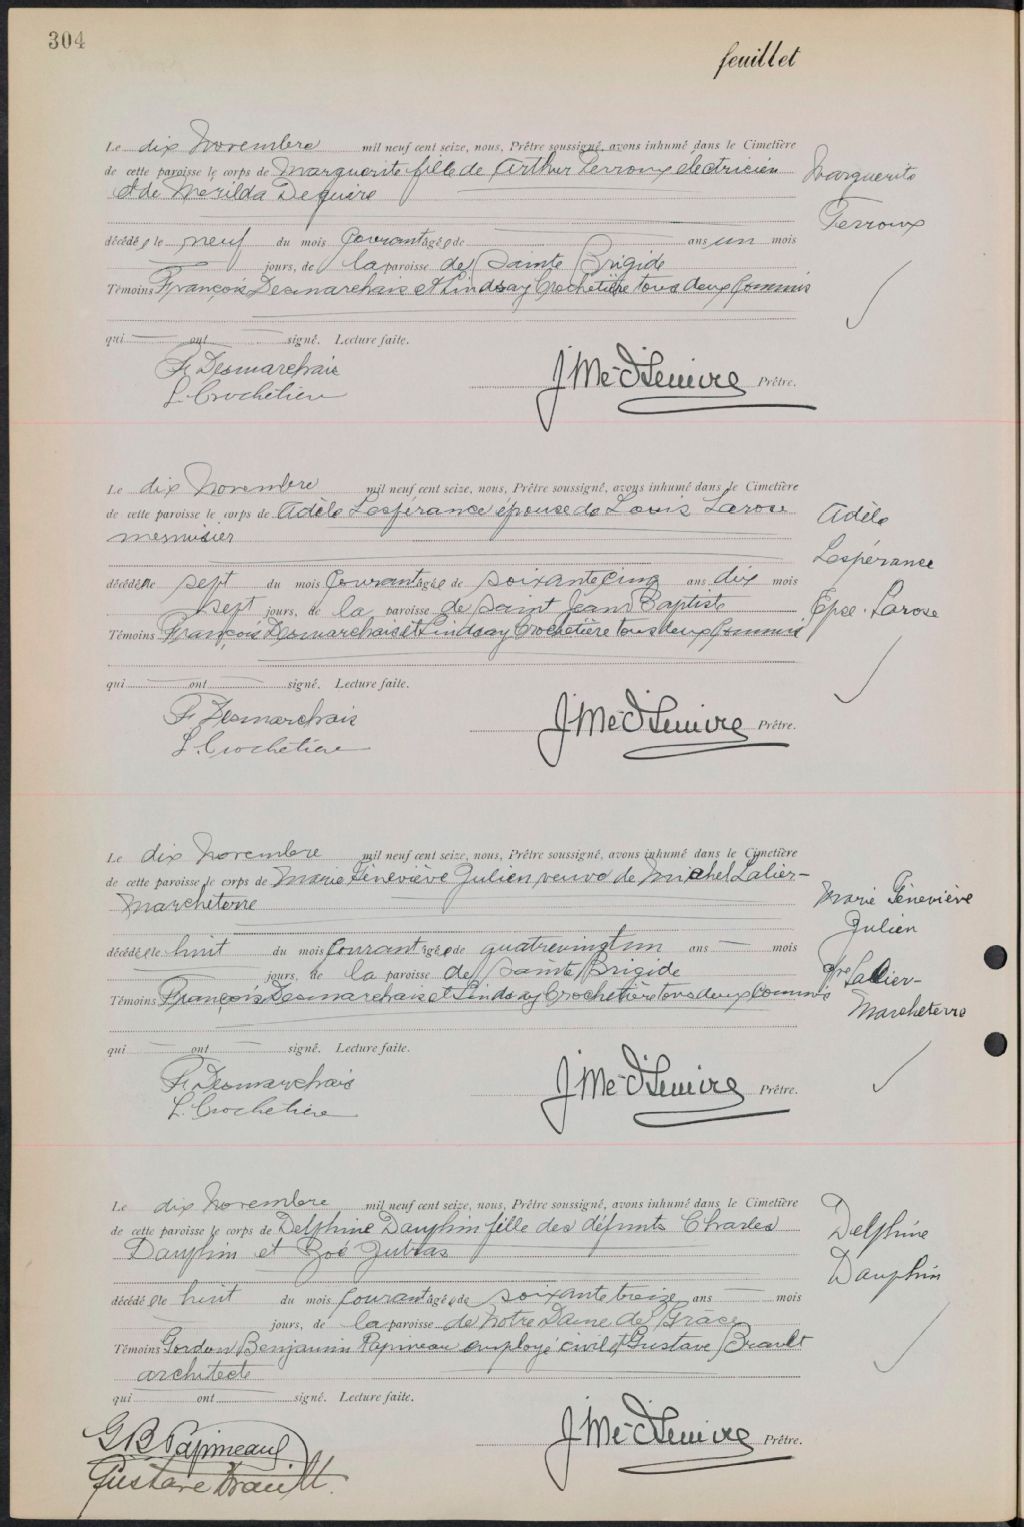 304
feuillet
Le dix Novembre mil neuf cent seize, nous, Prêtre soussigné, avons inhumé dans le Cimetière
de cette paroisse le corps de Marguerite fille de Arthur Terroux electricien
et de Merilda Dequire
Marguerite
Terroux
décédée le neuf du mois Courant âgée de ans un mois
jours, de la paroisse de Sainte Brigide
Témoins François Desmarchais et Lindsay Crochetière tous deux Commis
qui ont signé. Lecture faite.
F. Desmarchais
L. Crochetière
Prêtre.
Le dix Novembre mil neuf cent seize, nous, Prêtre soussigné, avons inhumé dans le Cimetière
de cette paroisse le corps de Adèle Lespérance épouse de Louis Larose
menuisier
Adèle
Lespérance
Epse. Larose
décédée le sept du mois Courant âgée de soixante cinq ans dix mois
sept jours, de la paroisse de Saint Jean Baptiste
Témoins François Desmarchais et Lindsay Crochetière tous deux Commis
qui ont signé. Lecture faite.
F. Desmarchais
L. Crochetière
Prêtre.
Le dix Novembre mil neuf cent seize, nous, Prêtre soussigné, avons inhumé dans le Cimetière
de cette paroisse le corps de Marie Géneviève Julien veuve de Michel Lalier-
Marcheterre
Marie Géneviève
Julien
Vve Lallier-
Marcheterre
décédée le huit du mois Courant âgée de quatrevingt un ans mois
jours, de la paroisse de Sainte Brigide
Témoins François Desmarchais et Lindsay Crochetière tous deux Commis
qui ont signé. Lecture faite.
F. Desmarchais
L. Crochetière
Prêtre.
Le dix Novembre mil neuf cent seize, nous, Prêtre soussigné, avons inhumé dans le Cimetière
de cette paroisse le corps de Delphine Dauphin fille des défunts Charles
Dauphin et Zoé Jutras
Delphine
Dauphin
décédée le huit du mois Courant âgée de soixante treize ans mois
jours, de la paroisse de Notre Dame de Grâce
Témoins Gordon Benjamin Papineau employé civil et Gustave Brault
architecte
qui ont signé. Lecture faite.
G B Papineau
Gustave Brault.
Prêtre.